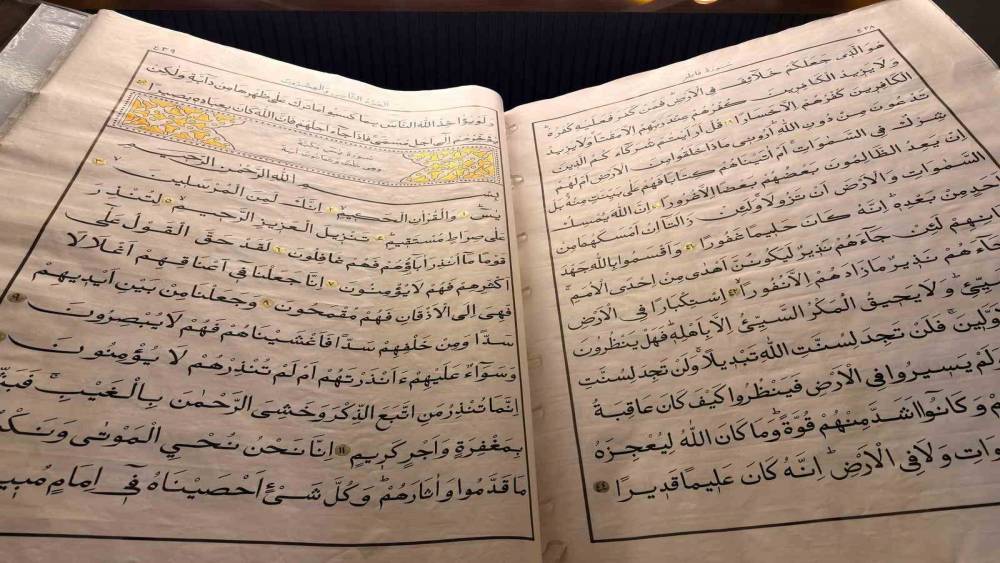 ٤٣٨
سورة فاطر
هُوَ الَّذِي جَعَلَكُمْ خَلَائِفَ فِي الْاَرْضِ فَمَنْ كَفَرَ فَعَلَيْهِ كُفْرُهُ
وَلَا يَزِيدُ الْكَافِرِينَ كُفْرُهُمْ عِنْدَ رَبِّهِمْ اِلَّا مَقْتًا وَلَا يَزِيدُ
الْكَافِرِينَ كُفْرُهُمْ اِلَّا خَسَارًا ٣٩ قُلْ اَرَاَيْتُمْ شُرَكَاءَكُمُ الَّذِينَ
تَدْعُونَ مِنْ دُونِ اللّٰهِ اَرُونِي مَاذَا خَلَقُوا مِنَ الْاَرْضِ اَمْ لَهُمْ
شِرْكٌ فِي السَّمٰوَاتِ اَمْ اٰتَيْنَاهُمْ كِتَابًا فَهُمْ عَلٰى بَيِّنَتٍ مِنْهُ بَلْ
اِنْ يَعِدُ الظَّالِمُونَ بَعْضُهُمْ بَعْضًا اِلَّا غُرُورًا ٤٠ اِنَّ اللّٰهَ يُمْسِكُ
السَّمٰوَاتِ وَالْاَرْضَ اَنْ تَزُولَا وَلَئِنْ زَالَتَا اِنْ اَمْسَكَهُمَا مِنْ
اَحَدٍ مِنْ بَعْدِهِ اِنَّهُ كَانَ حَلِيمًا غَفُورًا ٤١ وَاَقْسَمُوا بِاللّٰهِ جَهْدَ
لَئِنْ جَاءَهُمْ نَذِيرٌ لَيَكُونُنَّ اَهْدٰى مِنْ اِحْدَى الْاُمَمِ
جَاءَهُمْ نَذِيرٌ مَا زَادَهُمْ اِلَّا نُفُورًا ٤٢ اِسْتِكْبَارًا فِي الْاَرْضِ
وَلَا يَحِيقُ الْمَكْرُ السَّيِّئُ اِلَّا بِاَهْلِهِ فَهَلْ يَنْظُرُونَ
فَلَنْ تَجِدَ لِسُنَّتِ اللّٰهِ تَبْدِيلًا وَلَنْ تَجِدَ لِسُنَّتِ
وَلَمْ يَسِيرُوا فِي الْاَرْضِ فَيَنْظُرُوا كَيْفَ كَانَ عَاقِبَةُ
وَكَانُوا اَشَدَّ مِنْهُمْ قُوَّةً وَمَا كَانَ اللّٰهُ لِيُعْجِزَهُ
وَلَا فِي الْاَرْضِ اِنَّهُ كَانَ عَلِيمًا قَدِيرًا ٤٤
٤٣٩
الجزء الثاني والعشرون
وَلَوْ يُؤَاخِذُ اللّٰهُ النَّاسَ بِمَا كَسَبُوا مَا تَرَكَ عَلٰى ظَهْرِهَا مِنْ دَابَّةٍ وَلٰكِنْ
يُؤَخِّرُهُمْ اِلٰى اَجَلٍ مُسَمًّى فَاِذَا جَاءَ اَجَلُهُمْ فَاِنَّ اللّٰهَ كَانَ بِعِبَادِهِ بَصِيرًا ٤٥
بِسْمِ اللّٰهِ الرَّحْمٰنِ الرَّحِيمِ
يٰسٓ ١ وَالْقُرْاٰنِ الْحَكِيمِ ٢ اِنَّكَ لَمِنَ الْمُرْسَلِينَ ٣
عَلٰى صِرَاطٍ مُسْتَقِيمٍ ٤ تَنْزِيلَ الْعَزِيزِ الرَّحِيمِ ٥ لِتُنْذِرَ
قَوْمًا مَا اُنْذِرَ اٰبَاؤُهُمْ فَهُمْ غَافِلُونَ ٦ لَقَدْ حَقَّ الْقَوْلُ عَلٰى
اَكْثَرِهِمْ فَهُمْ لَا يُؤْمِنُونَ ٧ اِنَّا جَعَلْنَا فِي اَعْنَاقِهِمْ اَغْلَالًا
فَهِيَ اِلَى الْاَذْقَانِ فَهُمْ مُقْمَحُونَ ٨ وَجَعَلْنَا مِنْ بَيْنِ اَيْدِيهِمْ
سَدًّا وَمِنْ خَلْفِهِمْ سَدًّا فَاَغْشَيْنَاهُمْ فَهُمْ لَا يُبْصِرُونَ ٩
وَسَوَاءٌ عَلَيْهِمْ ءَاَنْذَرْتَهُمْ اَمْ لَمْ تُنْذِرْهُمْ لَا يُؤْمِنُونَ
اِنَّمَا تُنْذِرُ مَنِ اتَّبَعَ الذِّكْرَ وَخَشِيَ الرَّحْمٰنَ بِالْغَيْبِ
بِمَغْفِرَةٍ وَاَجْرٍ كَرِيمٍ ١١ اِنَّا نَحْنُ نُحْيِي الْمَوْتٰى
مَا قَدَّمُوا وَاٰثَارَهُمْ وَكُلَّ شَيْءٍ اَحْصَيْنَاهُ فِي اِمَامٍ